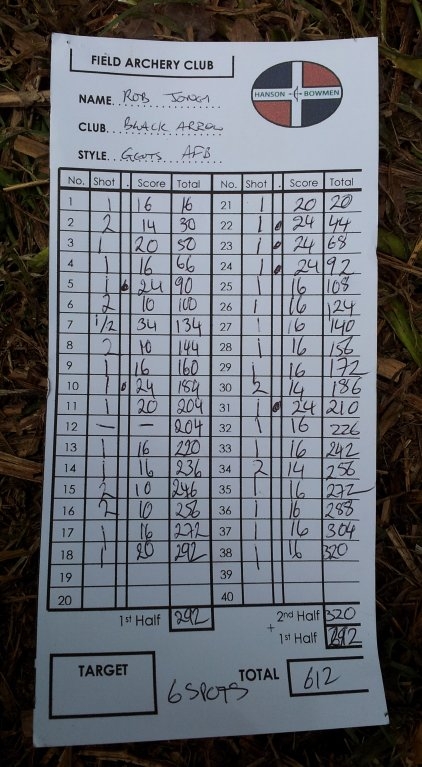 FIELD ARCHERY CLUB
HANSON BOWMEN
NAME ROB JONES
CLUB BLACK ARROW
STYLE GENTS AFB
No. Shot . Score Total No. Shot . Score Total
1 1 16 16 21 1 20 20
2 2 14 30 22 1 • 24 44
3 1 20 50 23 1 • 24 68
4 1 16 66 24 1 • 24 92
5 1 • 24 90 25 1 16 108
6 2 10 100 26 1 16 124
7 1/2 34 134 27 1 16 140
8 2 10 144 28 1 16 156
9 1 16 160 29 1 16 172
10 1 • 24 184 30 2 14 186
11 1 20 204 31 1 • 24 210
12 — — 204 32 1 16 226
13 1 16 220 33 1 16 242
14 1 16 236 34 2 14 256
15 2 10 246 35 1 16 272
16 2 10 256 36 1 16 288
17 1 16 272 37 1 16 304
18 1 20 292 38 1 16 320
19 39
20 40
1st Half 292 2nd Half 320
+ 1st Half 292
TARGET TOTAL 612
6 SPOTS